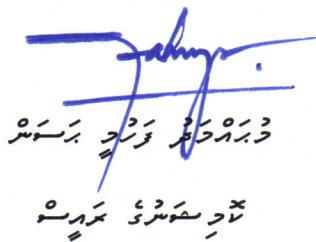 މުޙައްމަދު ފަހުމީ ޙަސަން
ކޮމިޝަނުގެ ރައީސް